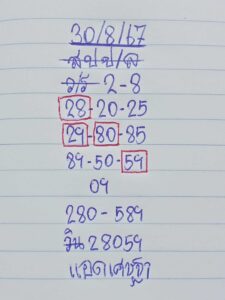 30/8/67
สปป/ล
วิ่ง 2-8
28-20-25
29-80-85
89-50-59
09
280-589
วิน 28059
แอดเศรษฐา